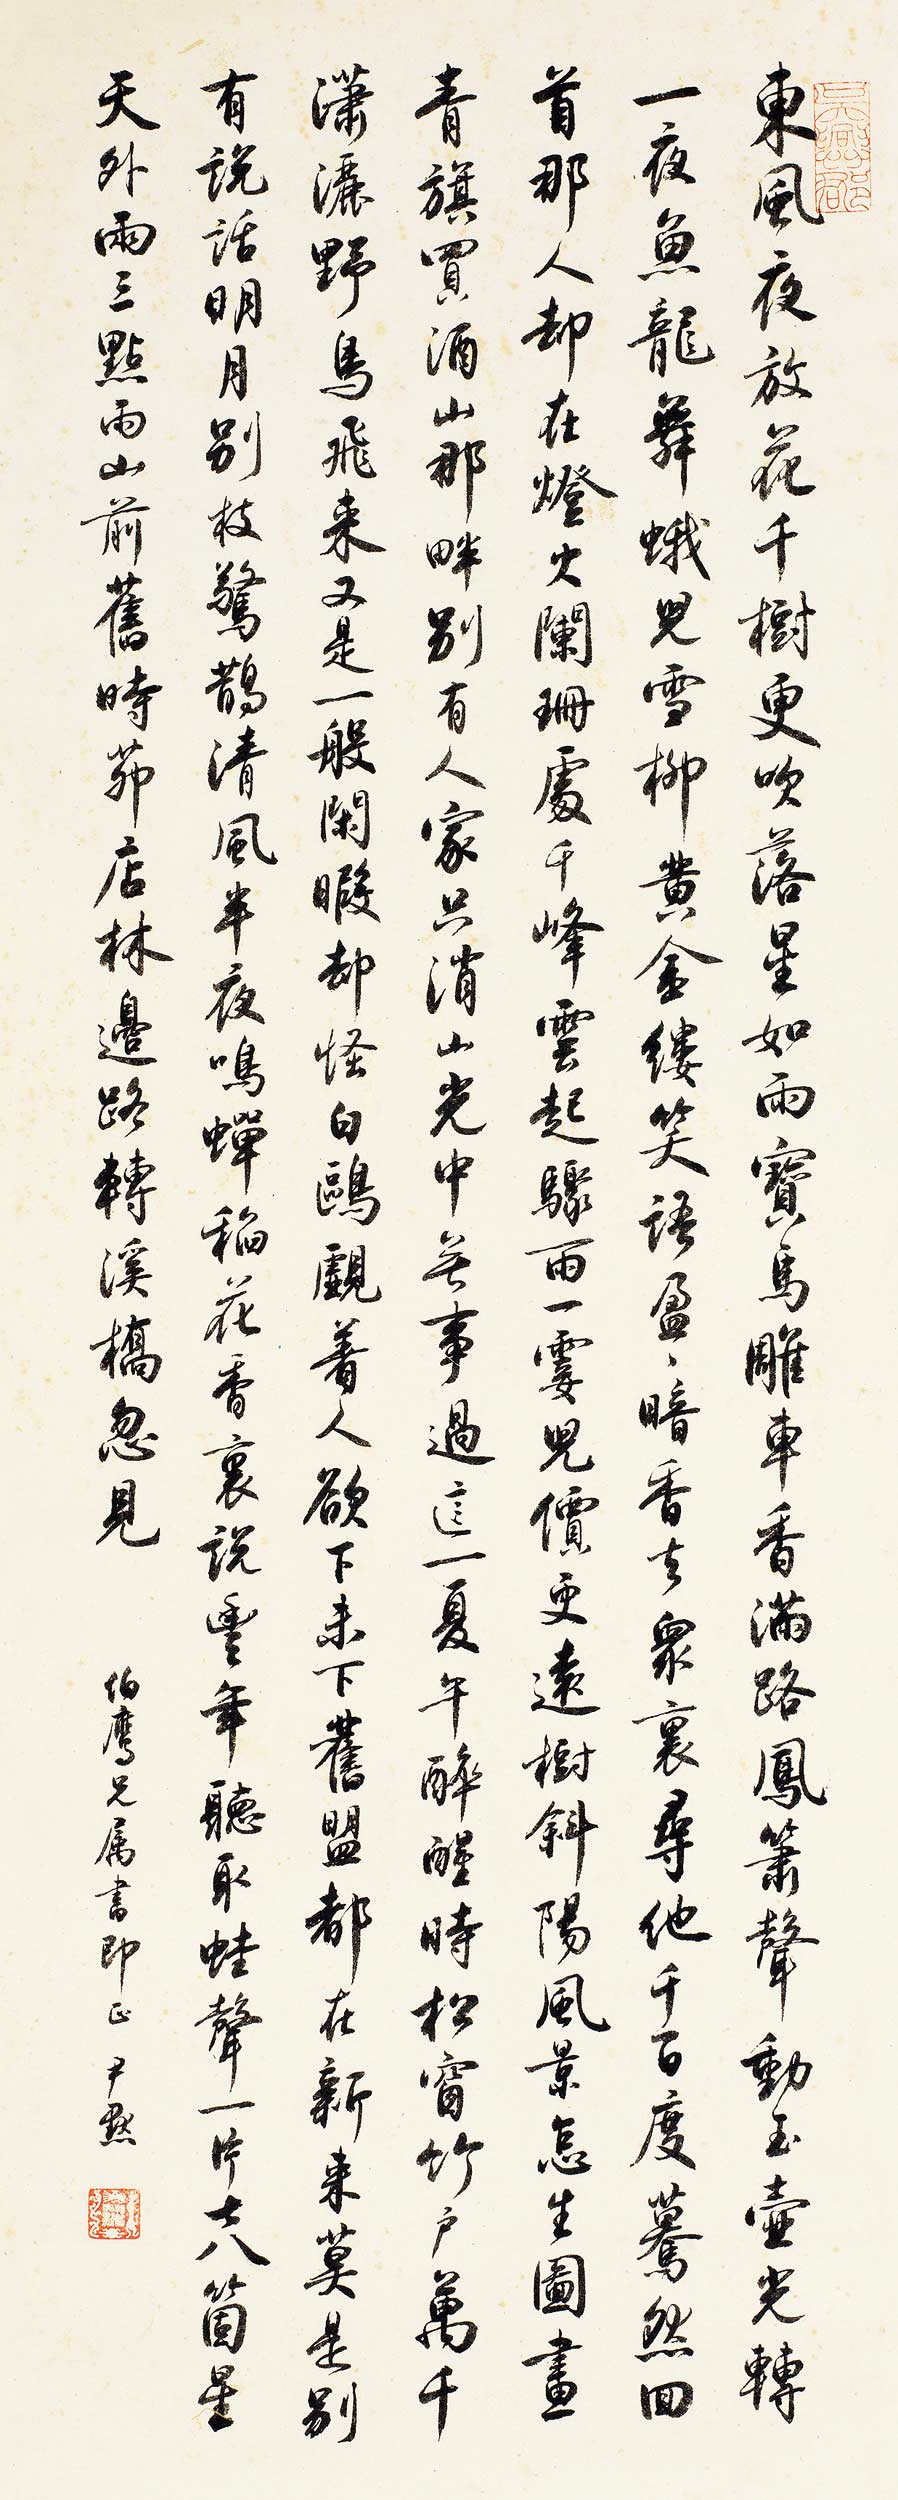 東風夜放花千樹更吹落星如雨寶馬雕車香滿路鳳簫聲動玉壺光轉
一夜魚龍舞蛾兒雪柳黄金縷笑語盈〻暗香去衆裏尋他千百度驀然回
首那人却在燈火闌珊處千峰雲起驟雨一霎兒價更遠樹斜陽風景怎生圖畫
青旗買酒山那畔別有人家只消山光中無事過這一夏午醉醒時松窗竹户萬千
瀟灑野鳥飛來又是一般閑暇却怪白鷗覷著人欲下未下舊盟都在新來莫是別
有說話明月別枝驚鵲清風半夜鳴蟬稻花香裏說豐年聽取蛙聲一片七八箇星
天外兩三點雨山前舊時茆店林邊路轉溪橋忽見
伯鷹兄属書即正 尹默